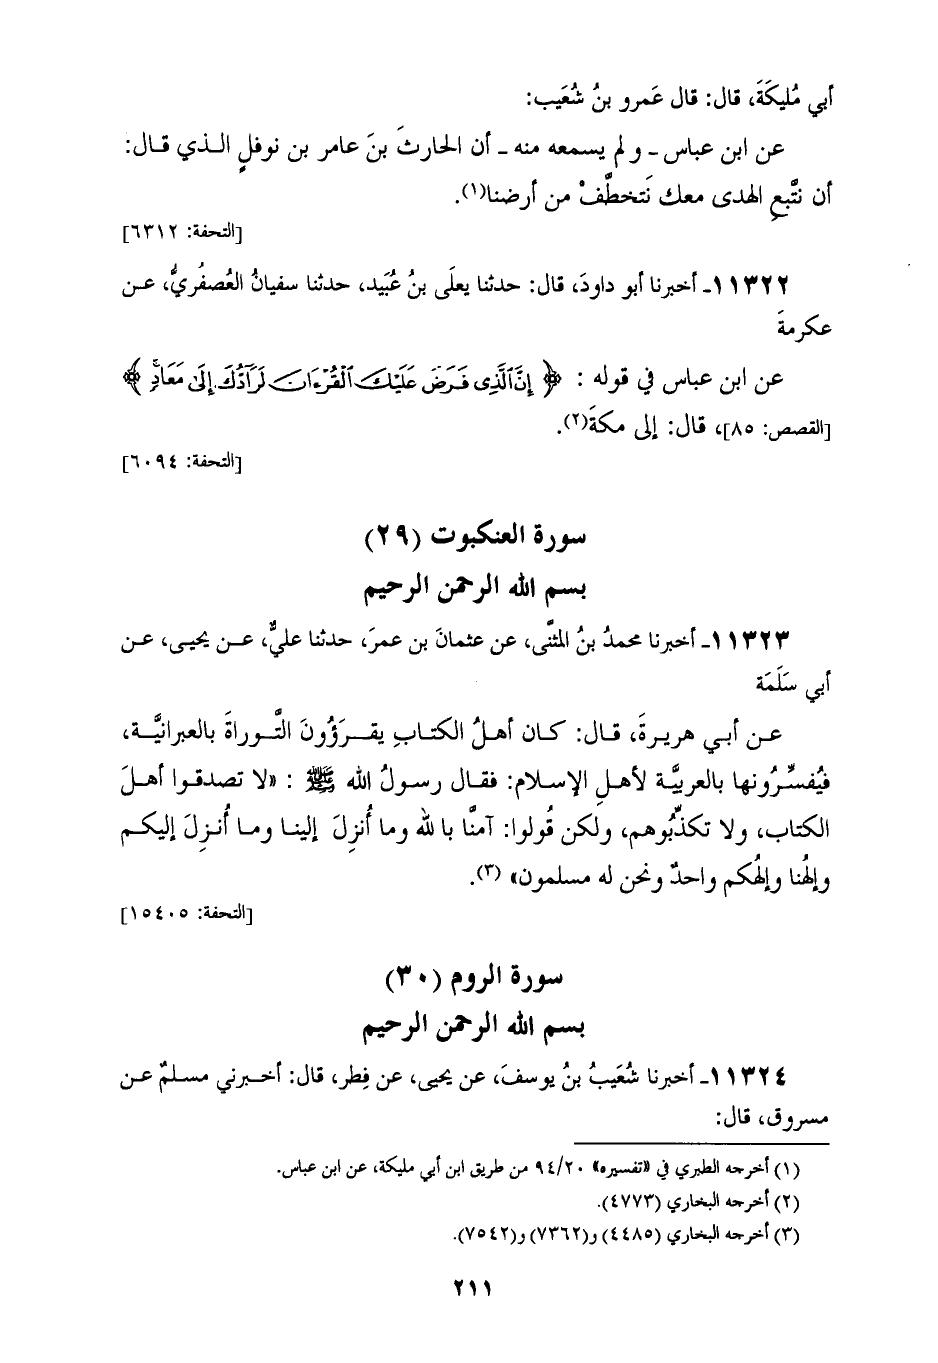 أبي مُليكَةَ، قال: قال عَمرو بنُ شُعَيب:
عن ابن عباس ـ ولم يسمعه منه ـ أن الحارثَ بنَ عامر بن نوفلٍ الـذي قـال:
أن نتَّبعِ الهدى معك نَتخطَّفْ من أرضنا(١).
[التحفة: ٦٣١٢]
١١٣٢٢ـ أخبرنا أبو داودَ، قال: حدثنا يعلَى بنُ عُبَيد، حدثنا سفيانُ العُصفُريُّ، عـن
عكرمةَ
عن ابن عباس في قوله : ﴿ إِنَّ ٱلَّذِى فَرَضَ عَلَيْكَ ٱلْقُرْءَانَ لَرَآدُّكَ إِلَىٰ مَعَادٍ ﴾
[القصص: ٨٥]، قال: إلى مكةَ(٢).
[التحفة: ٦٠٩٤]
سورة العنكبوت (٢٩)
بسم الله الرحمن الرحيم
١١٣٢٣ـ أخبرنا محمدُ بنُ المثنَّى، عن عثمانَ بن عمرَ، حدثنا عليٌّ، عـن يحيـى، عـن
أبي سَلَمَة
عـن أبـي هريرةَ، قـال: كـان أهـلُ الكتـابِ يقـرَؤُونَ التَّـوراةَ بالعبرانيَّـة،
فيُفسِّرُونها بالعربيَّة لأهـلِ الإسـلام: فقـال رسـولُ الله ﷺ : «لا تصدقـوا أهـلَ
الكتاب، ولا تكذِّبُوهم، ولكن قُولوا: آمنَّا بالله وما أُنزِلَ إلينـا ومـا أُنـزِلَ إليكـم
وإلهُنا وإلهُكم واحدٌ ونحن له مسلمون» (٣).
[التحفة: ١٥٤٠٥]
سورة الروم (٣٠)
بسم الله الرحمن الرحيم
١١٣٢٤ـ أخبرنا شُعَيبُ بنُ يوسفَ، عن يحيى، عن فِطر، قال: أخـبرني مسـلمٌ عـن
مسروق، قال:
(١) أخرجه الطبري في «تفسيره» ٩٤/٢٠ من طريق ابن أبي مليكة، عن ابن عباس.
(٢) أخرجه البخاري (٤٧٧٣).
(٣) أخرجه البخاري (٤٤٨٥) و(٧٣٦٢) و(٧٥٤٢).
٢١١